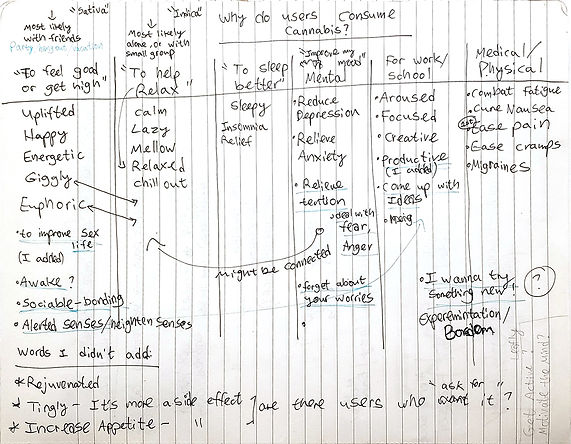 Why do users Consume
Cannabis?
"Sativa"
most likely
with friends
Party hangout vacation
"To feel good
or get high"
Uplifted
Happy
Energetic
Giggly
Euphoric
• to improve sex
life
(I added)
• Awake?
• Sociable-bonding
• Alerted senses/heighten senses
"Indica"
Most likely
alone, or with
small group
"To help
Relax"
calm
Lazy
Mellow
Relaxed
chill out
"To sleep
better"
Sleepy
Insomnia
Relief
"Improve my
mood"
Mental
• Reduce
Depression
• Relieve
Anxiety
• Relieve
tention
• deal with
fear,
Anger
Might be connected
• forget about
your worries
For work/
school
• Aroused
• Focused
• Creative
• Productive
(I added)
• Come up with
Ideas
Medical/
Physical
• Combat Fatigue
• Cure Nausea
• Ease pain
• Ease cramps
• Migraines
• I wanna try
something new!
?
Experemintation/
Boredom
Words I didn't add:
* Rejuvenated
* Tingly - It's more a side effect
* Increase Appetite - "
are there users who want it?
"ask for"
Get Active?
Motivate the mind?